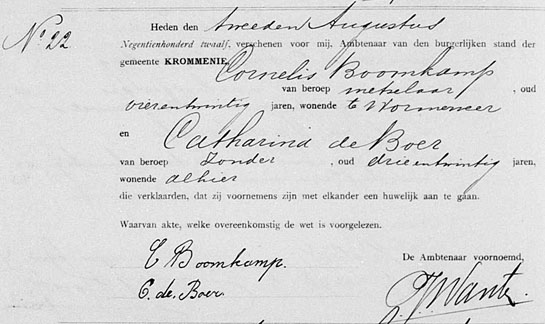 No 22
Heden den tweeden Augustus
Negentienhonderd twaalf, verschenen voor mij, Ambtenaar van den burgerlijken stand der
gemeente KROMMENIE,
Cornelis Boomkamp
van beroep metselaar, oud
vierentwintig jaren, wonende te Wormerveer
en
Catharina de Boer
van beroep Zonder, oud drieentwintig jaren,
wonende alhier
die verklaarden, dat zij voornemens zijn met elkander een huwelijk aan te gaan.
Waarvan akte, welke overeenkomstig de wet is voorgelezen.
De Ambtenaar voornoemd,
C Boomkamp.
C. de. Boer.